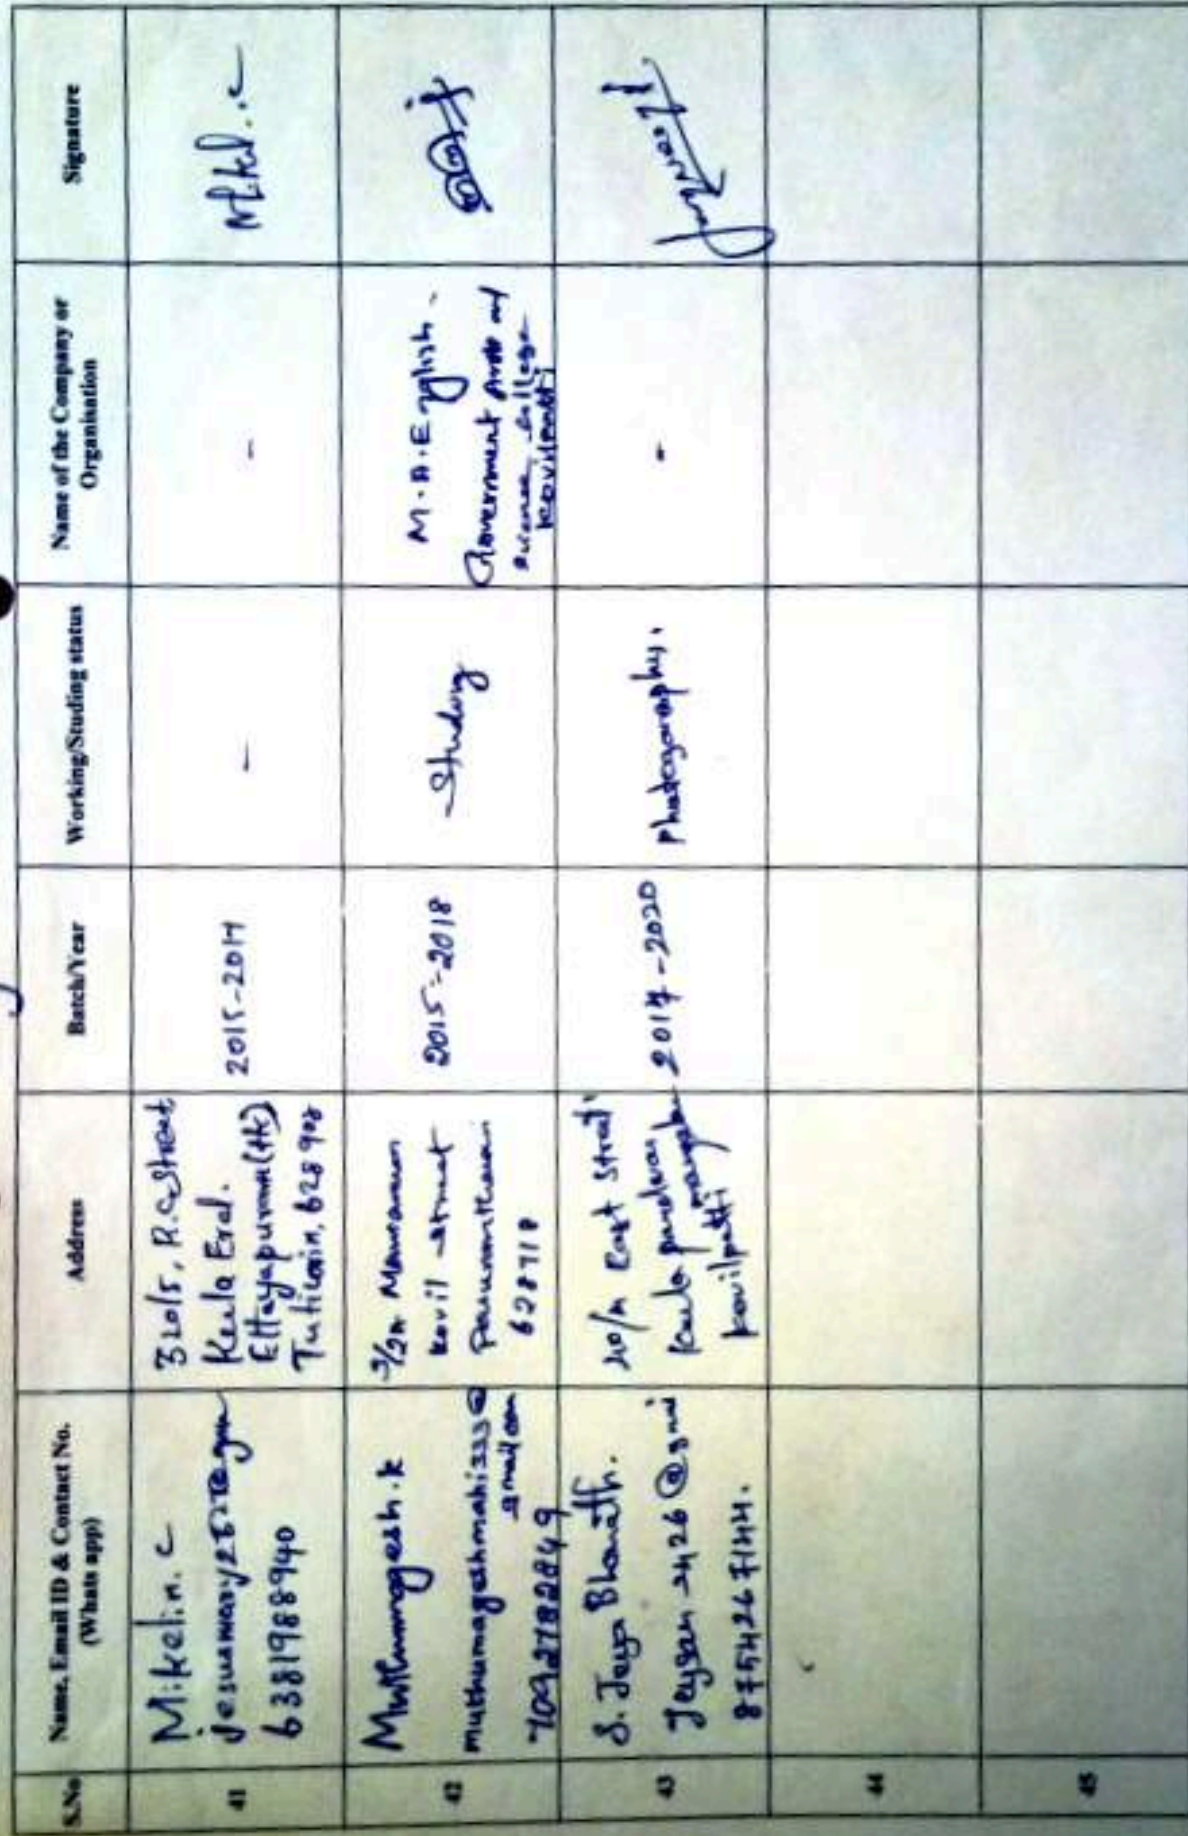 S.No
Name, Email ID & Contact No.
(Whats app)
Address
Batch/Year
Working/Studing status
Name of the Company or
Organisation
Signature
41
Mikelin. C
6381988940
320/5, R.C. Street
Keela Eral.
Ettayapuram (tk)
Tuticorin, 628 902
2015-2017
-
-
42
Muthumugesh.k
muthumageshmahi333@
gmail com
7092782849
kovil street
628718
2015-2018
Studing
M.A.English.
Government Arts and
Science college
kovilpatti
43
S. Jeya Bharath.
Jeyson 2426@gmai
8754267144.
East Street
kovilpatti
2017-2020
photography.
-
44
45